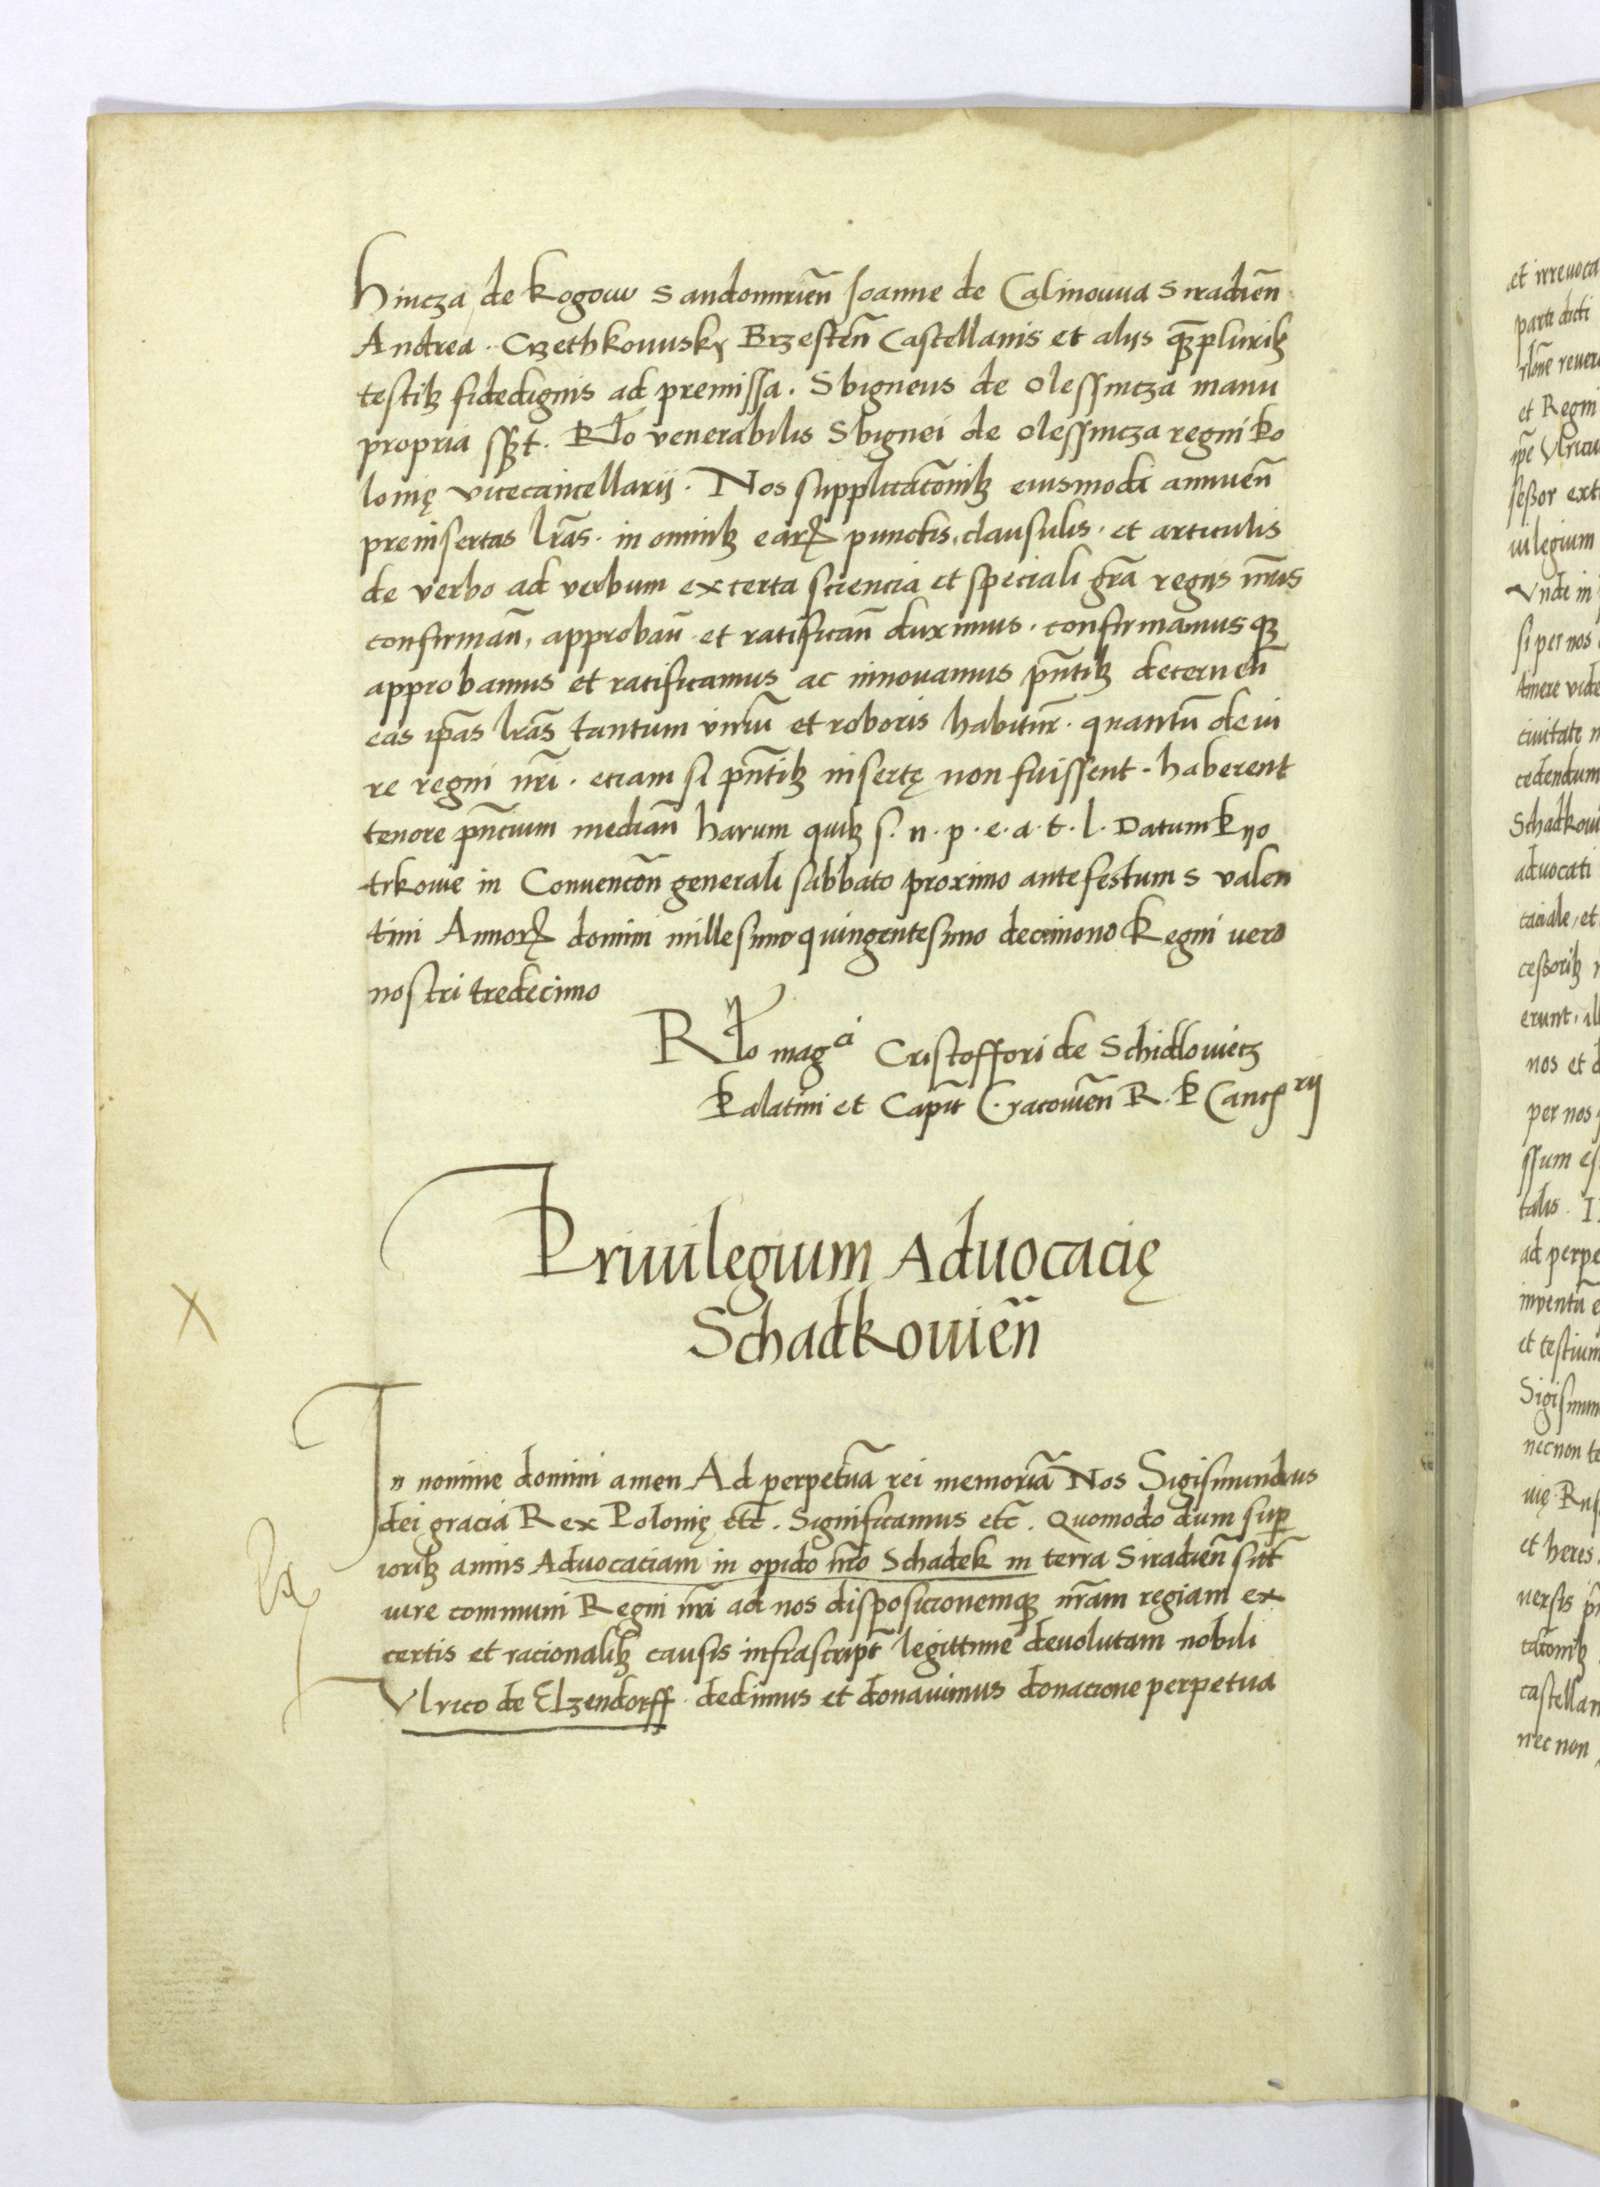 Hincza de Rogow Sandomirien̄ Joanne de Calinouua Siradien̄
Andrea. Czethkouusky Brzestn̄ Castellanis et alijs q̄mpluribꝫ
testibꝫ fidedignis ad premissa. Sbigneus de Olessnicza manu
propria sszt. Rlo venerabilis Sbignei de Olessnicza regni Po
lonię vicecancellarij. Nos supplicatōnibꝫ eiusmodi annuen̄
preinsertas lrās. in omnibꝫ earꝝ punctis, clausulis. et articulis
de verbo ad verbum ex certa sciencia et speciali grā regijs nr̄is
confirman̄, approban̄ et ratifican̄ duximus. confirmamusqꝫ
approbamus et ratificamus ac innouamus pn̄tibꝫ decernen̄
eas ip̄as lrās tantum virīū et roboris habitur̄. quantū de iu
re regni nr̄i. etiam si pn̄tibꝫ insertę non fuissent. haberent
tenore pn̄cium median̄ harum quibꝫ s. n. p. e. a. t. l. Datum Pyo
trkowie in Conuencōn generali sabbato proximo ante festum S valen
tini Annorꝝ domini millesimo quingentesimo decimono Regni vero
nostri tredecimo
Rlo mag^ci Cristoffori de Schidlowiecz
Palatini et Capit̄ Cracowien̄ R. P Canc^rij
Priuilegium Aduocacię
Schadkouien̄
X
In nomine domini amen Ad perpetuā rei memoriā Nos Sigismundus
dei gracia Rex Polonię etc̄. Significamus etc̄. Quomodo dum sup̄
ioribꝫ annis Aduocatiam in opido nr̄o Schadek in terra Siradien̄ sūt
iure communi Regni nr̄i ad nos disposicionemqꝫ nr̄am regiam ex
certis et racionalibꝫ causis infrascript̄ legittime deuolutam nobili
Vlrico de Elzendorff. dedimus et donauimus donacione perpetua
et irreuoca
parte dicti
et Regni
ip̄e Vlricu
sessor ext
uilegium
Vnde in
si per nos
timere vide
ciuitate n
cedendum
Schadkoui
aduocati
taciale, et
cessoribꝫ
erunt, ill
nos et d
per nos
ssum es
talis. I
ad perpe
inuentū e
et testium
Sigismun
necnon te
et heres
uersis
castellan
necnon